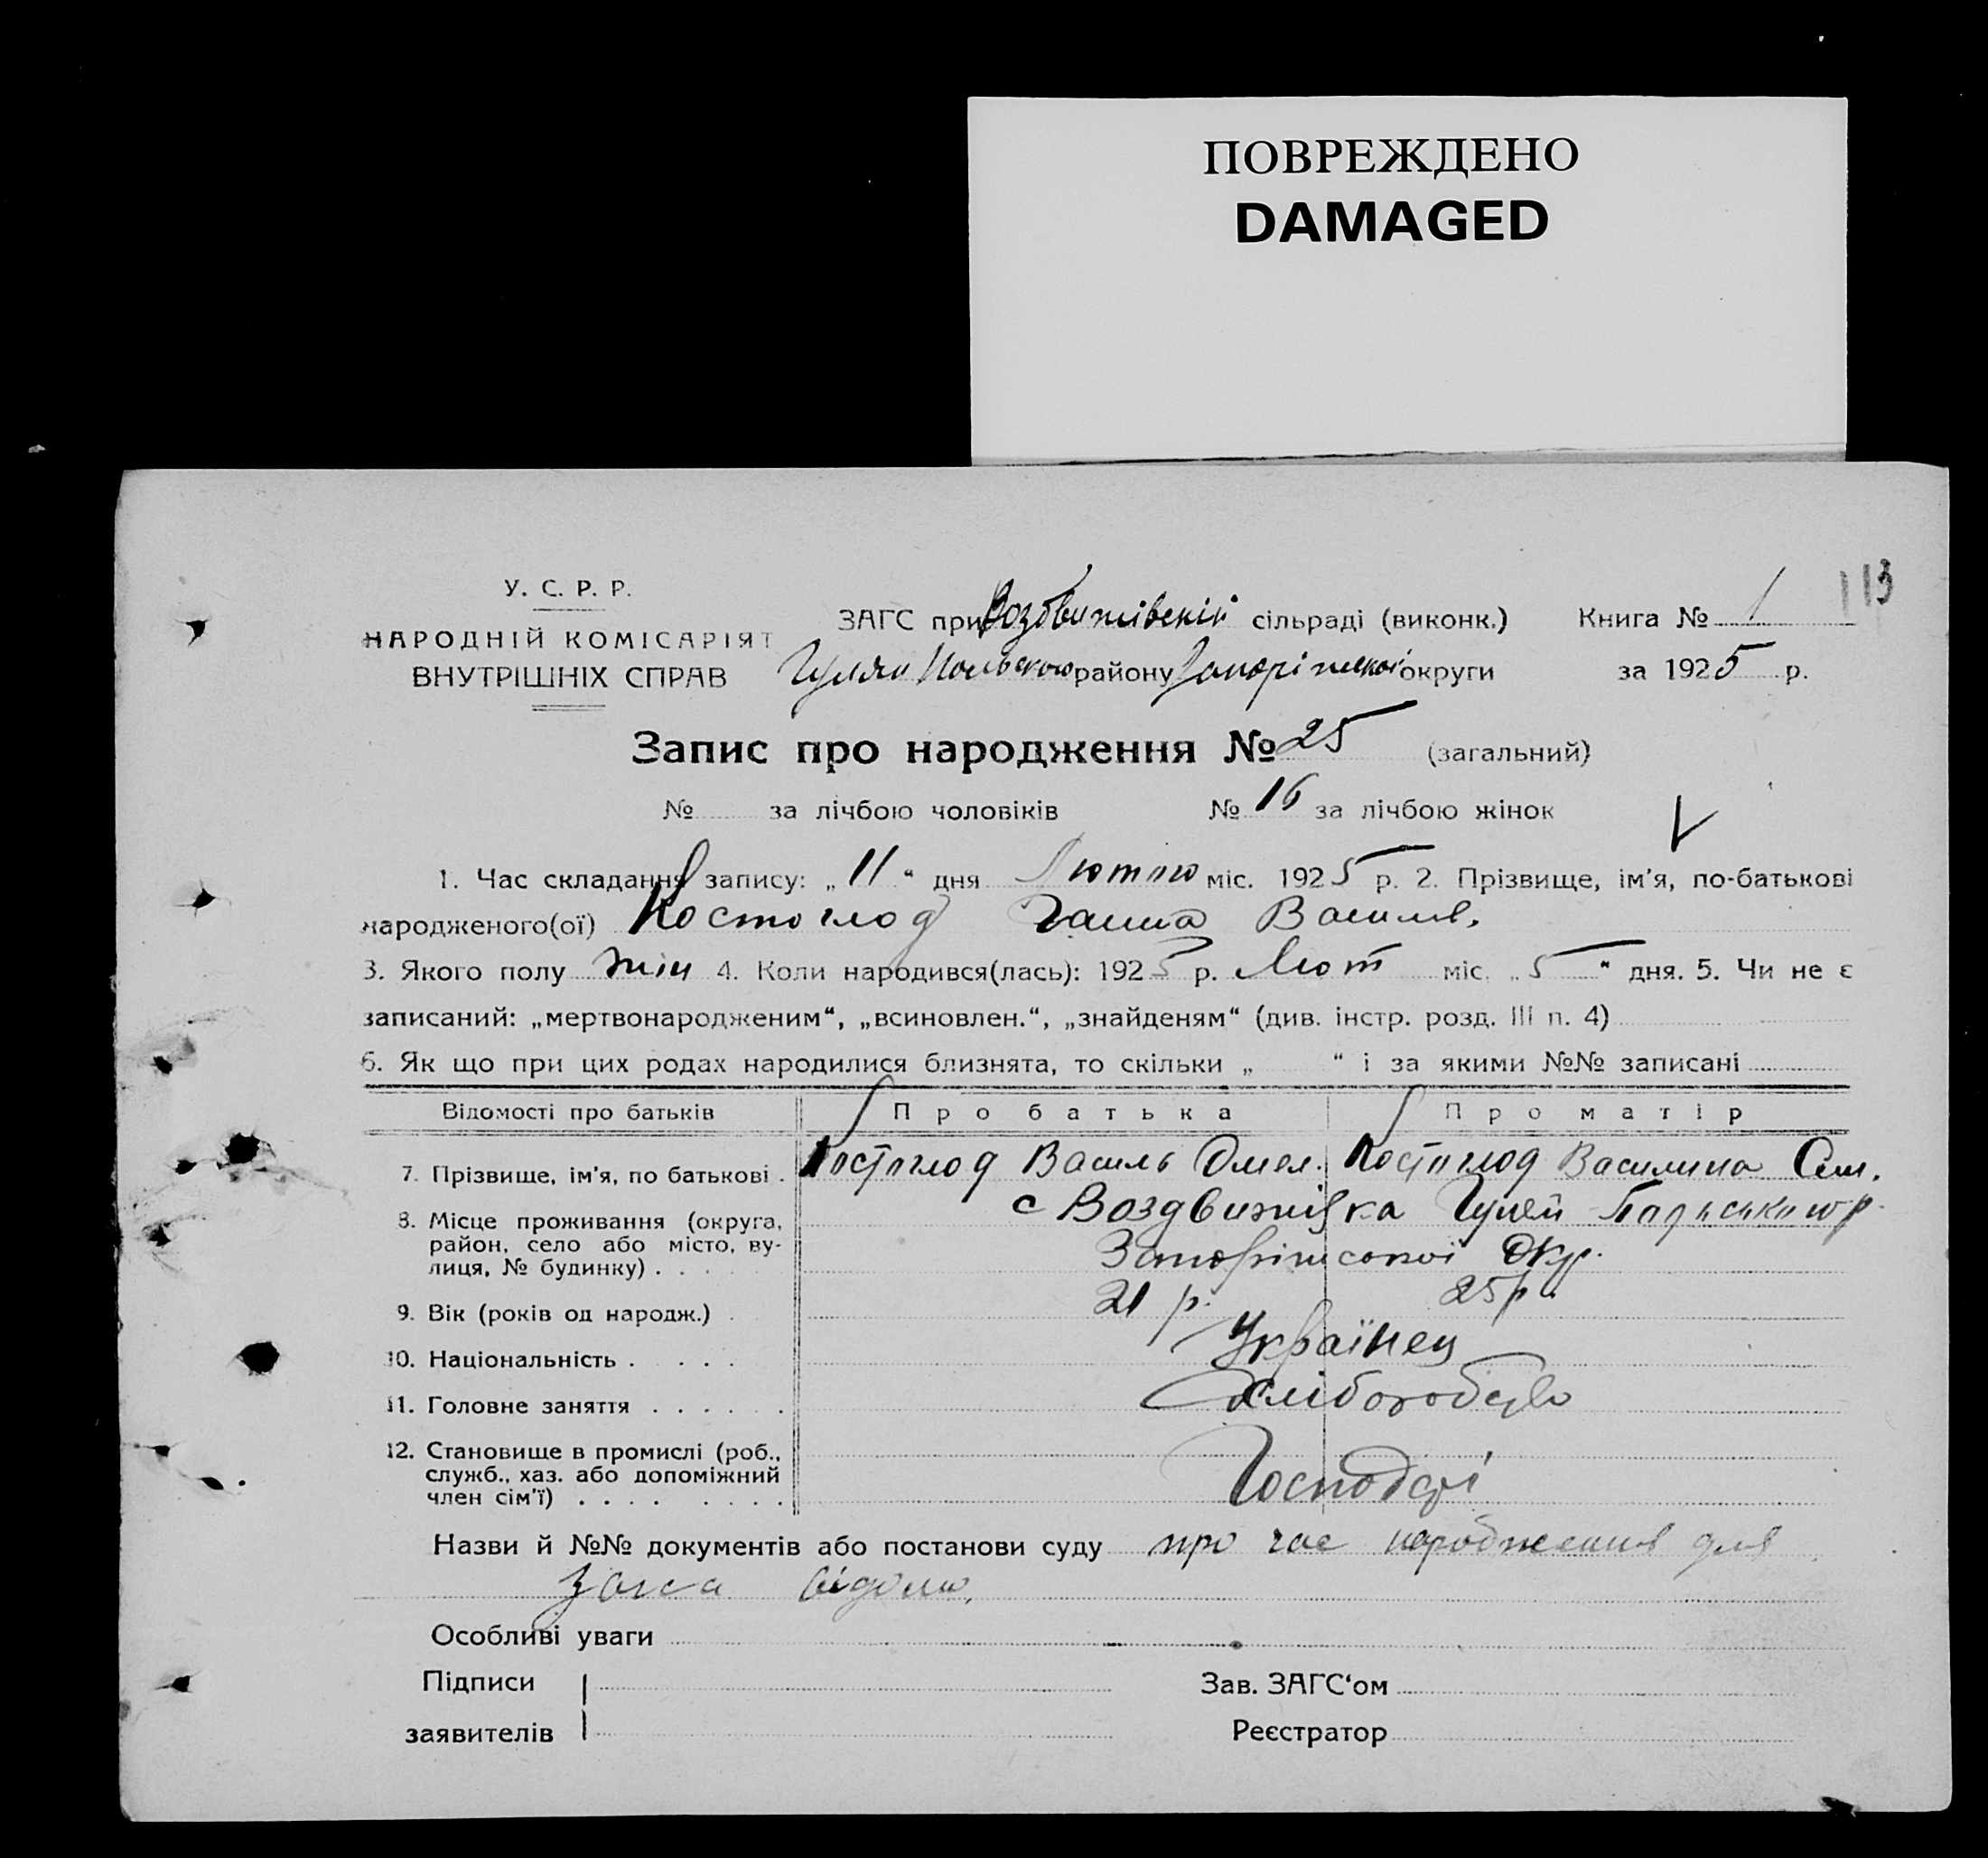 ПОВРЕЖДЕНО
DAMAGED
113
У. С. Р. Р.
НАРОДНІЙ КОМІСАРІЯТ
ВНУТРІШНІХ СПРАВ
ЗАГС при Воздвижівській сільраді (виконк.) Книга № 1
Гуляй Польського району Запоріжської округи за 1925 р.
Запис про народження № 25 (загальний)
№ за лічбою чоловіків № 16 за лічбою жінок
1. Час складання запису: „11“ дня Лютого міс. 1925 р. 2. Прізвище, ім'я, по-батькові
народженого(ої) Костоглод Ганна Васил.
3. Якого полу жін 4. Коли народився(лась): 1925 р. Лют міс. „5“ дня. 5. Чи не є
записаний: „мертвонародженим“, „всиновлен.“, „знайденям“ (див. інстр. розд. III п. 4)
6. Як що при цих родах народилися близнята, то скільки „ “ і за якими №№ записані
Відомості про батьків Про батька Про матір
7. Прізвище, ім'я, по батькові . Костоглод Василь Омел. Костоглод Василина Сем.
8. Місце проживання (округа, с Воздвижівка Гуляй
район, село або місто, ву-
лиця, № будинку) . . . . Запоріжської Окр.
9. Вік (років од народж.) . 21 р. 25 р.
10. Національність . . . . . Українец
11. Головне заняття . . . . . .
12. Становище в промислі (роб.,
служб., хаз. або допоміжний Господарі
член сім'ї) . . . . . . . .
Назви й №№ документів або постанови суду про час народження для
Загса відомо.
Особливі уваги
Підписи Зав. ЗАГС‘ом
заявителів Реєстратор